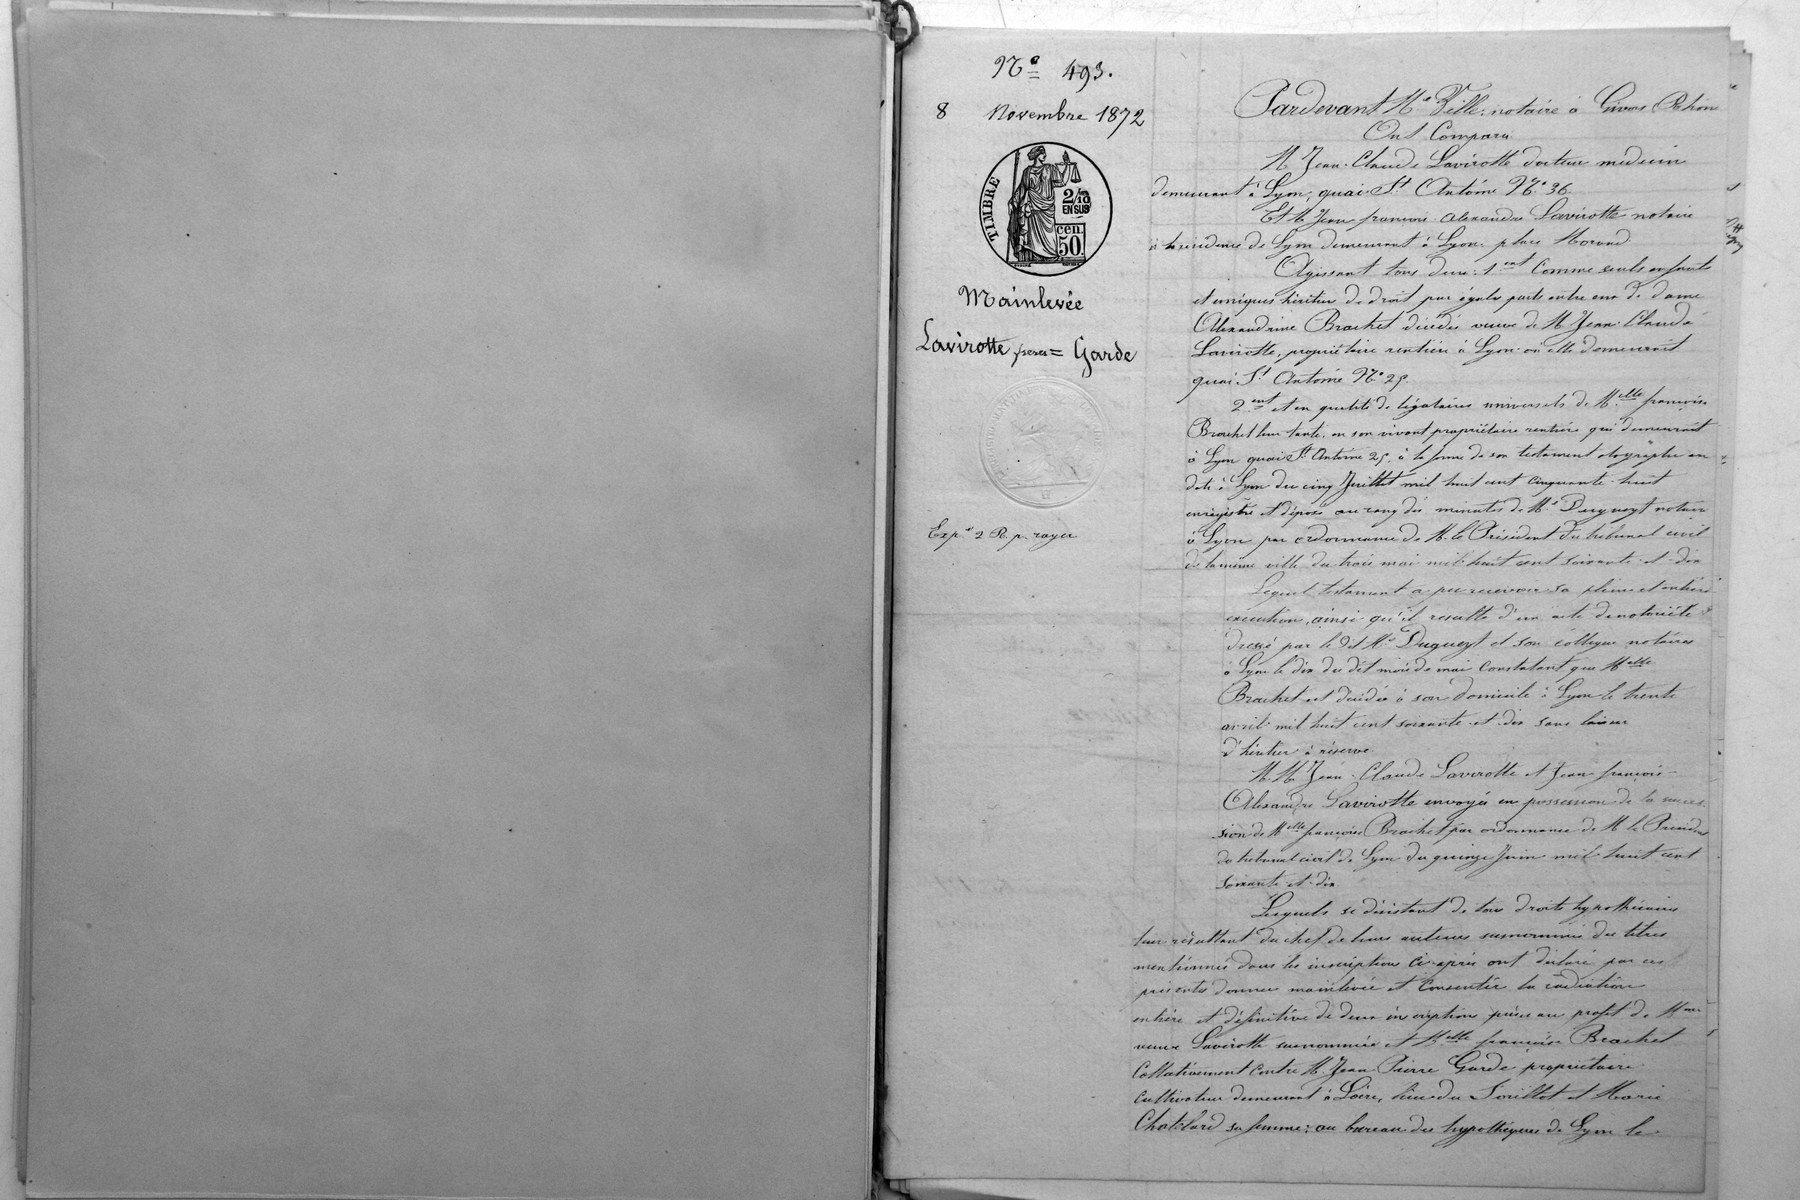 N° 493.
8 Novembre 1872
TIMBRE
2/10
EN SUS
cen.
50.
Mainlevée
Lavirotte freres = Garde
Exp.on 2 R. p. rayer
Pardevant Me Zille, notaire à Givors Rhône
Ont Comparu
M Jean-Claude Lavirotte docteur medecin
demeurant à Lyon, quai St Antoine N° 36
Et M Jean françois Alexandre Lavirotte notaire
à la résidence de Lyon demeurant à Lyon place Morand
Agissant tous deux 1ent Comme seuls enfants
et uniques héritiers de droit par égales parts entre eux de dame
Alexandrine Brachet décédée veuve de M Jean-Claude
Lavirotte, propriétaire rentière à Lyon où elle demeurait
quai St Antoine N° 25.
2ent et en qualité de légataires universels de Melle françoise
Brachet leur tante, en son vivant propriétaire rentière qui demeurait
à Lyon quai St Antoine 25, à la forme de son testament olographe en
date à Lyon du cinq Juillet mil huit cent cinquante-huit
enregistré et déposé au rang des minutes de Me Dugueyt notaire
à Lyon par ordonnance de M. le Président du tribunal civil
de la même ville du trois mai mil huit cent soixante-et-dix
Lequel testament a pu recevoir sa pleine et entière
exécution, ainsi qu'il resulte d'un acte de notoriété
dressé par le dit Me Dugueyt et son collegue notaires
à Lyon le dix du dit mois de mai Constatant que Melle
Brachet est décédée à son domicile à Lyon le trente
avril mil huit cent soixante-et-dix sans laisser
d'héritier à réserve.
M.M. Jean-Claude Lavirotte et Jean françois-
Alexandre Lavirotte envoyés en possession de la succes-
sion de Melle françoise Brachet par ordonnance de M le Président
du tribunal civil de Lyon du quinze Juin mil huit cent
soixante-et-dix
Lesquels se désistant de tous droits hypothécaires
leur résultant du chef de leurs auteurs susnommés des titres
mentionnés dans les inscriptions ci-après ont déclaré par ces
présentes donner mainlevée et Consentir la radiation
entière et définitive de deux inscriptions prises au profit de Mme
veuve Lavirotte susnommée et Melle françoise Brachet
Collectivement Contre M. Jean-Pierre Garde propriétaire
Cultivateur demeurant à Loire, lieu du et Marie
Chatelard sa femme; au bureau des hypothèques de Lyon le